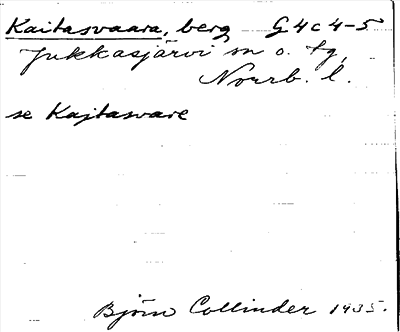 Kaitasvaara, berg G4c4-5
Jukkasjärvi sn o. tg,
Norrb. l.
se Kajtasvare
Björn Collinder 1935.